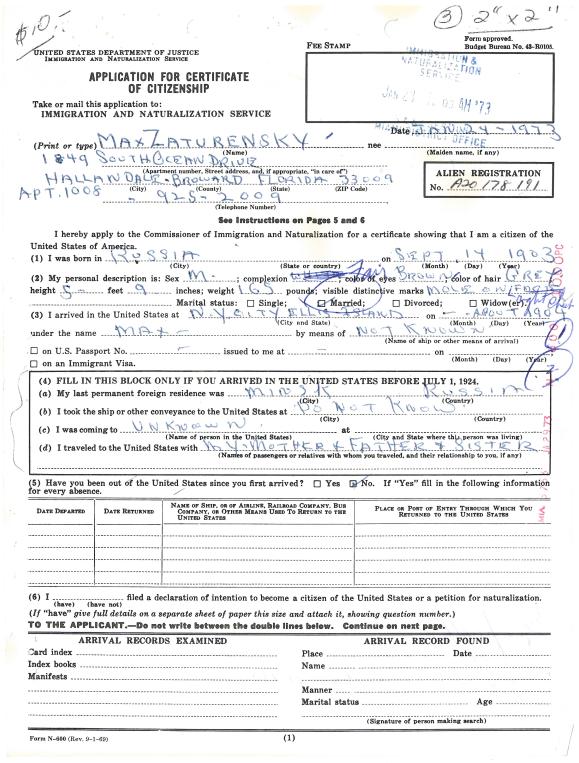 $10.-
③ 2" x 2"
UNITED STATES DEPARTMENT OF JUSTICE
IMMIGRATION AND NATURALIZATION SERVICE
FEE STAMP
Form approved.
Budget Bureau No. 43-R0105.
APPLICATION FOR CERTIFICATE
OF CITIZENSHIP
IMMIGRATION &
NATURALIZATION
SERVICE
Take or mail this application to:
IMMIGRATION AND NATURALIZATION SERVICE
Date JAN 24 - 1973
(Print or type) MAX ZATURENSKY nee
(Name) (Maiden name, if any)
1849 SOUTH OCEAN DRIVE
(Apartment number, Street address, and, if appropriate, "in care of")
HALLANDALE - BROWARD FLORIDA 33009
ALIEN REGISTRATION
No. A20 178 191
APT. 1008 (City) (County) (State) (ZIP Code)
- 925 - 2009
(Telephone Number)
See Instructions on Pages 5 and 6
I hereby apply to the Commissioner of Immigration and Naturalization for a certificate showing that I am a citizen of the
United States of America.
(1) I was born in RUSSIA on SEPT. 14 1903
(City) (State or country) (Month) (Day) (Year)
(2) My personal description is: Sex M-; complexion fair; color of eyes BROWN; color of hair GREY
height 5- feet 9 inches; weight 165 pounds; visible distinctive marks MOLE ON FACE
Marital status: Single; Married; Divorced; Widow(er).
(3) I arrived in the United States at N.Y. CITY ELLIS ISLAND on - ABOUT 1904
(City and State) (Month) (Day) (Year)
under the name MAX by means of NOT KNOWN
(Name of ship or other means of arrival)
on U.S. Passport No. issued to me at on
(Month) (Day) (Year)
on an Immigrant Visa.
(4) FILL IN THIS BLOCK ONLY IF YOU ARRIVED IN THE UNITED STATES BEFORE JULY 1, 1924.
(a) My last permanent foreign residence was MINSK RUSSIA
(City) (Country)
(b) I took the ship or other conveyance to the United States at DO NOT KNOW
(City) (Country)
(c) I was coming to UNKNOWN at
(Name of person in the United States) (City and State where this person was living)
(d) I traveled to the United States with MY MOTHER & FATHER & SISTER
(Names of passengers or relatives with whom you traveled, and their relationship to you, if any)
(5) Have you been out of the United States since you first arrived? Yes No. If "Yes" fill in the following information
for every absence.
DATE DEPARTED DATE RETURNED NAME OF SHIP, OR OF AIRLINE, RAILROAD COMPANY, BUS COMPANY, OR OTHER MEANS USED TO RETURN TO THE UNITED STATES PLACE OR PORT OF ENTRY THROUGH WHICH YOU RETURNED TO THE UNITED STATES
(6) I filed a declaration of intention to become a citizen of the United States or a petition for naturalization.
(have) (have not)
(If "have" give full details on a separate sheet of paper this size and attach it, showing question number.)
TO THE APPLICANT.—Do not write between the double lines below. Continue on next page.
ARRIVAL RECORDS EXAMINED ARRIVAL RECORD FOUND
Card index Place Date
Index books Name
Manifests
Manner
Marital status Age
(Signature of person making search)
Form N-600 (Rev. 9-1-69) (1)